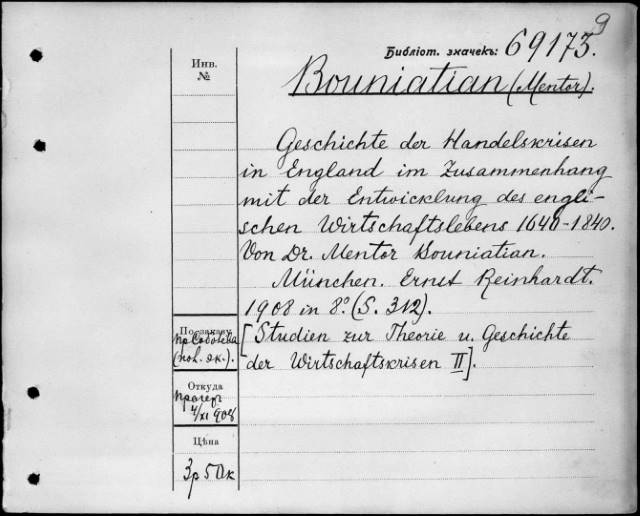 9
Библіот. значекъ: 69173.
Инв.
№
Bouniatian (Mentor).
Geschichte der Handelskrisen
in England im Zusammenhang
mit der Entwicklung des engli-
schen Wirtschaftslebens 1640-1840.
Von Dr. Mentor Bouniatian.
München. Ernst Reinhardt.
1908 in 8°. (S. 312).
[Studien zur Theorie u. Geschichte
der Wirtschaftskrisen II].
По заказу
пр. Соболева
(пол. эк.).
Откуда
4/XI 908
Цѣна
3 р 50 к